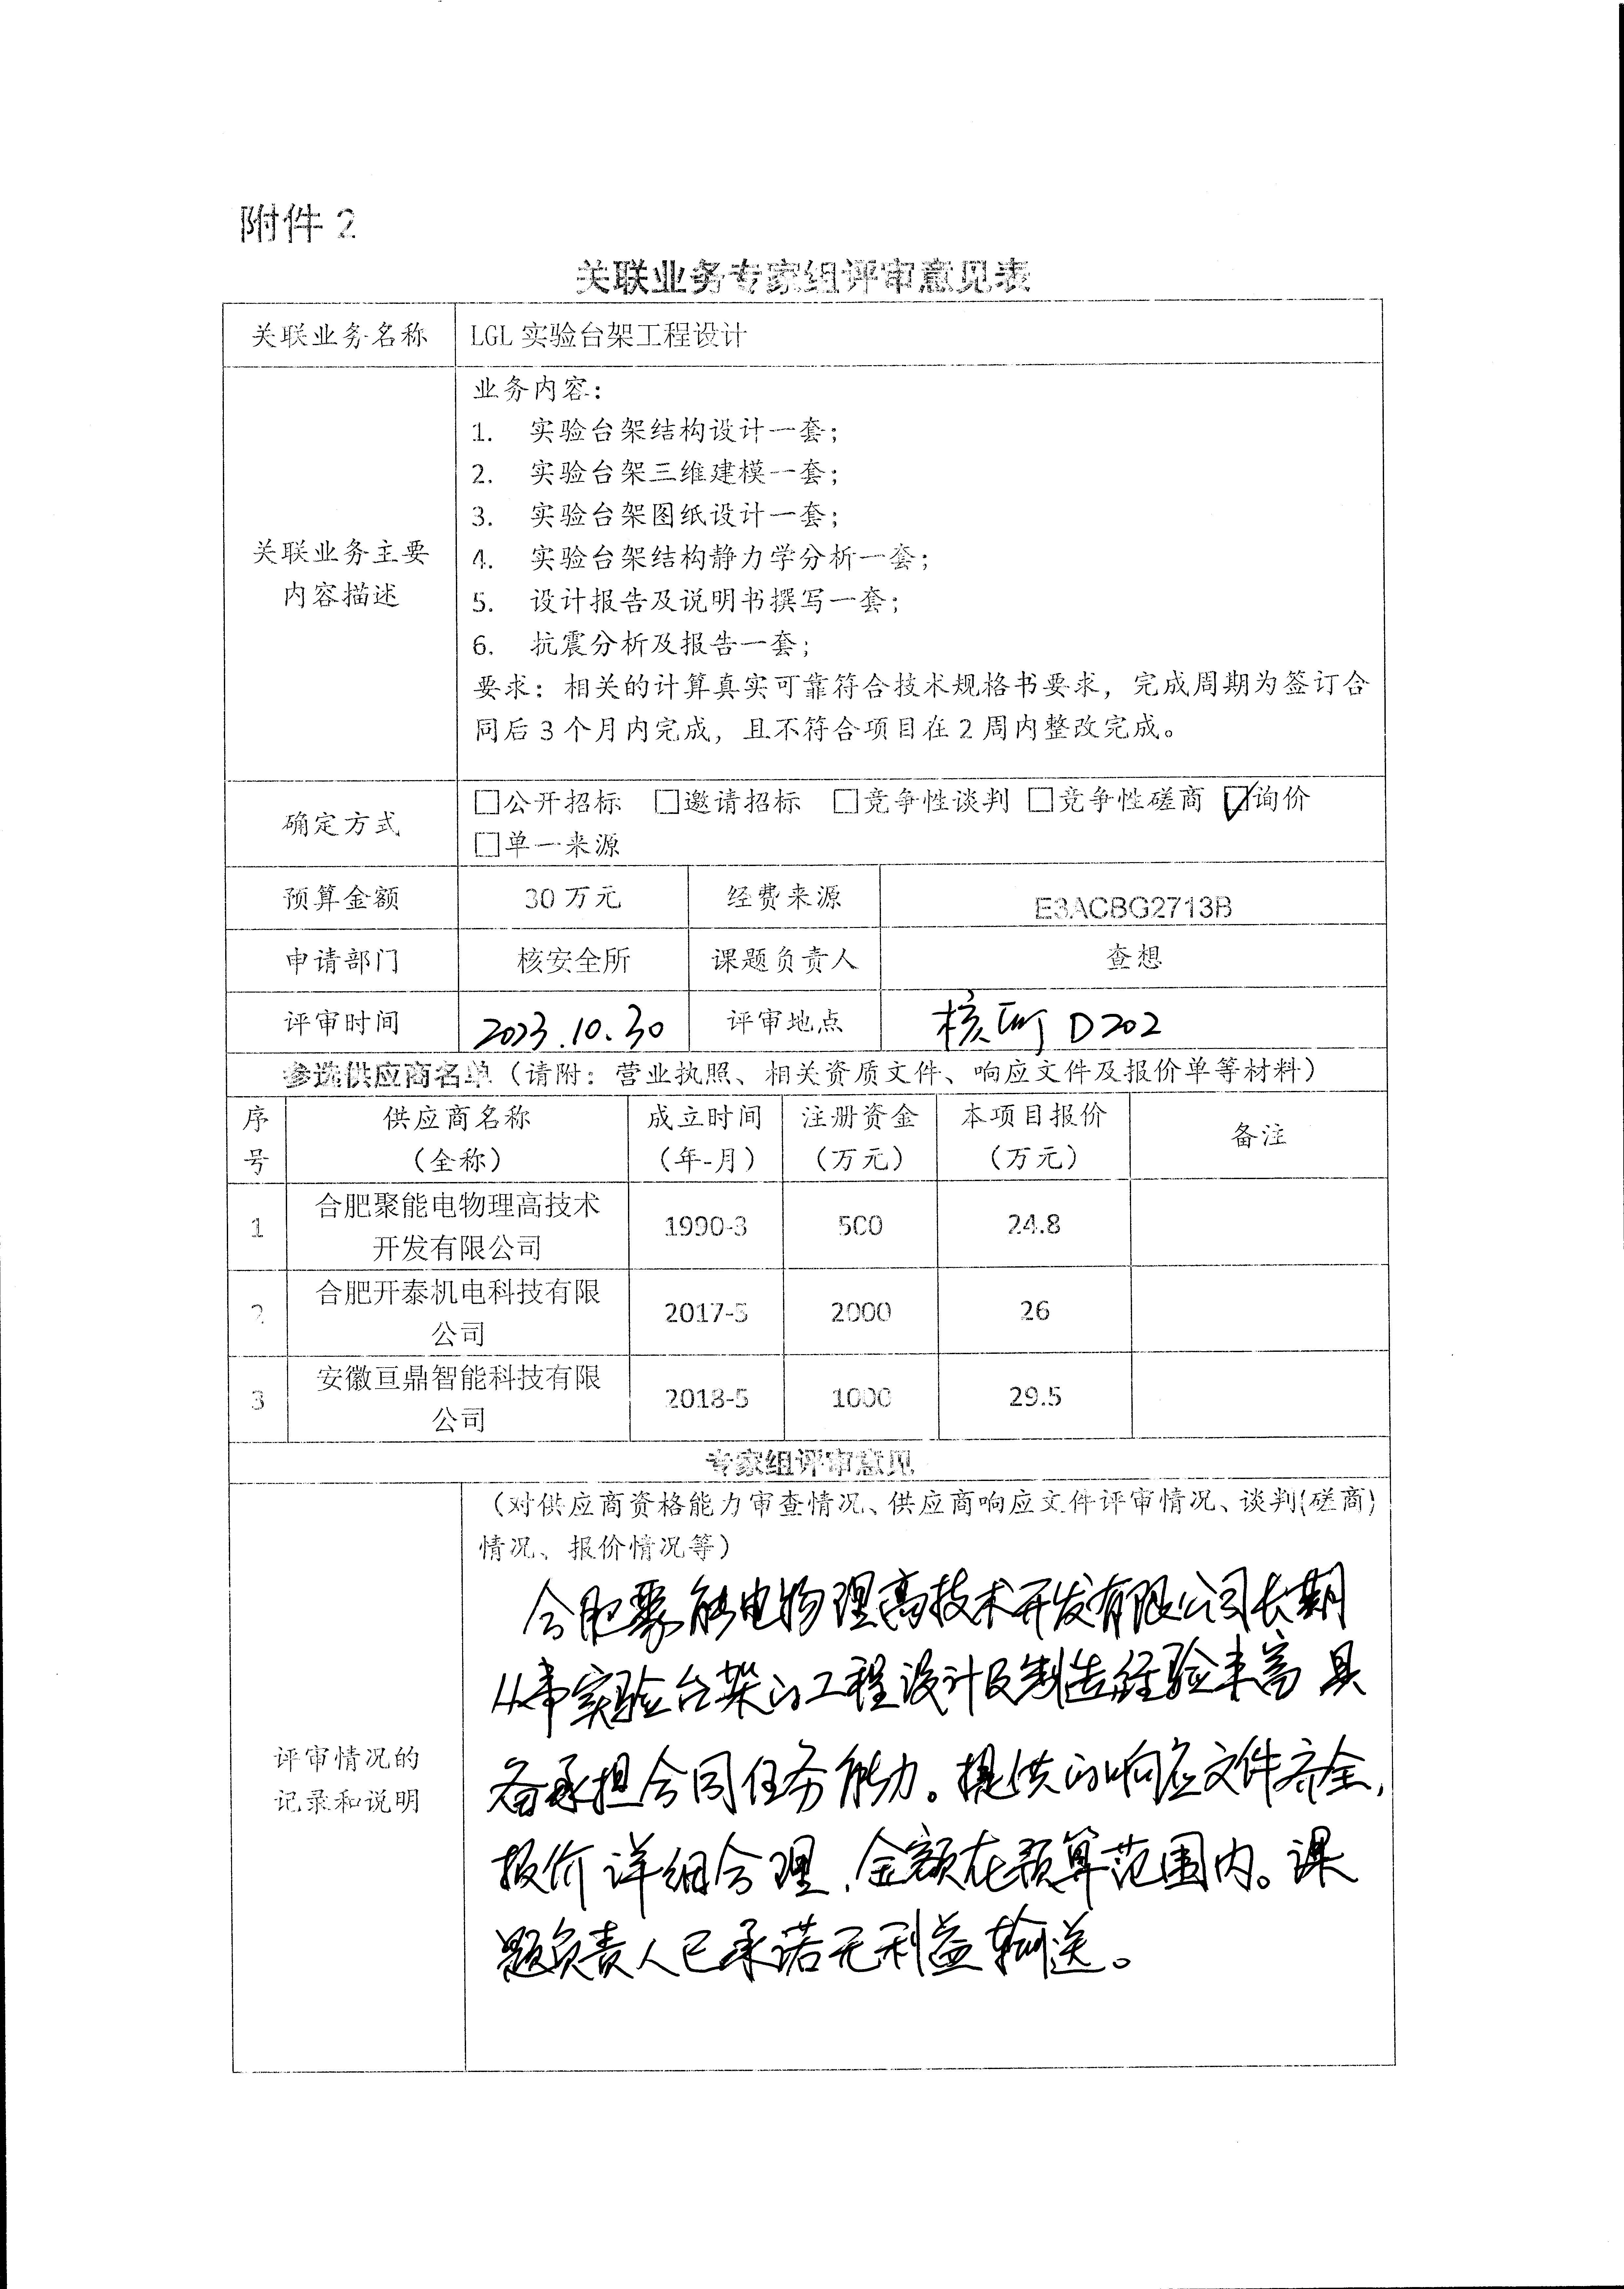 附件 2
关联业务专家组评审意见表
关联业务名称 LGL 实验台架工程设计
关联业务主要内容描述
业务内容：
1. 实验台架结构设计一套；
2. 实验台架三维建模一套；
3. 实验台架图纸设计一套；
4. 实验台架结构静力学分析一套；
5. 设计报告及说明书撰写一套；
6. 抗震分析及报告一套；
要求：相关的计算真实可靠符合技术规格书要求，完成周期为签订合
同后 3 个月内完成，且不符合项目在 2 周内整改完成。
确定方式 □公开招标 □邀请招标 □竞争性谈判 □竞争性磋商 ☑询价
□单一来源
预算金额 30 万元 经费来源 E3ACBG2713B
申请部门 核安全所 课题负责人 查想
评审时间 2023.10.30 评审地点 核 D202
参选供应商名单（请附：营业执照、相关资质文件、响应文件及报价单等材料）
序号 供应商名称（全称） 成立时间（年-月） 注册资金（万元） 本项目报价（万元） 备注
1 合肥聚能电物理高技术开发有限公司 1990-3 500 24.8
2 合肥开泰机电科技有限公司 2017-5 2000 26
3 安徽亘鼎智能科技有限公司 2018-5 1000 29.5
专家组评审意见
评审情况的记录和说明
（对供应商资格能力审查情况、供应商响应文件评审情况、谈判(磋商)
情况、报价情况等）
合肥聚能电物理高技术开发有限公司长期
从事实验台架的工程设计及制造经验丰富 具
备承担合同任务能力。提供的响应文件齐全，
报价详细合理，金额在预算范围内。课
题负责人已承诺无利益输送。